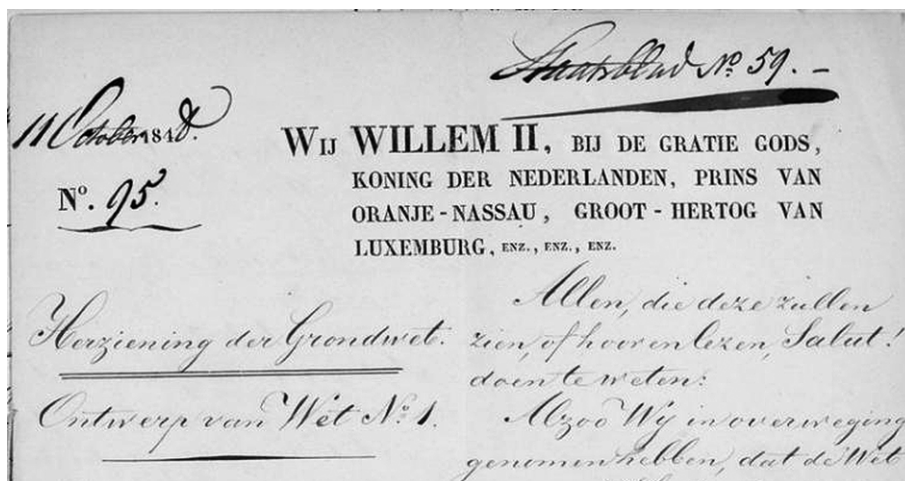 Staatsblad No. 59. –
11 October 1848.
No. 95.
WIJ WILLEM II, BIJ DE GRATIE GODS,
KONING DER NEDERLANDEN, PRINS VAN
ORANJE-NASSAU, GROOT-HERTOG VAN
LUXEMBURG, ENZ., ENZ., ENZ.
Herziening der Grondwet.
Ontwerp van Wet No. 1.
Allen, die deze zullen
zien, of hooren lezen, Salut!
doen te weten:
Alzoo Wij in overweging
genomen hebben, dat de Wet